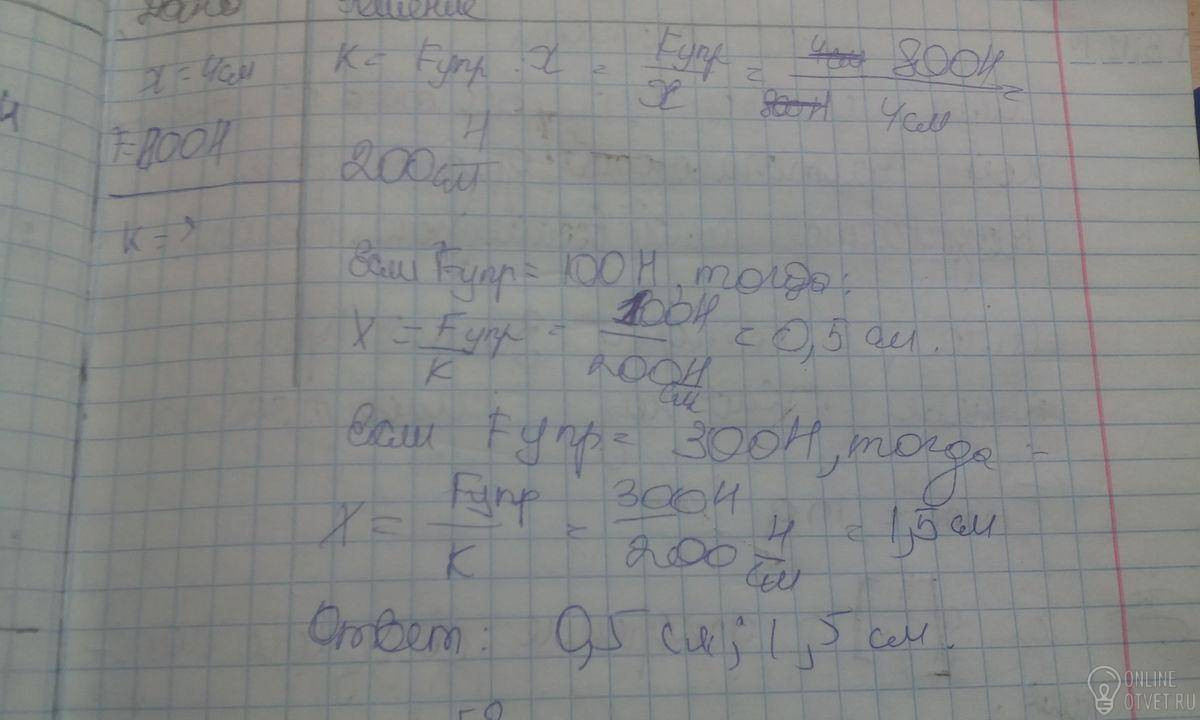 Дано
Решение
x = 4см
F=800Н
K = ?
K = Fупр · x = Fупр/x = 800Н/4см =
200 Н/см
Если Fупр = 100Н, тогда:
X = Fупр/K = 100Н/200Н/см = 0,5 см.
Если Fупр = 300Н, тогда -
X = Fупр/K = 300Н/200 Н/см = 1,5 см
Ответ: 0,5 см; 1,5 см.
ONLINE
OTVET.RU